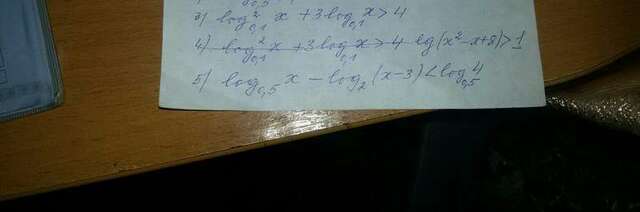 3) log²₀,₁ x + 3log₀,₁ x > 4
4) ~~log²₀,₁ x + 3log₀,₁ x > 4~~ lg(x² - x + 8) > 1
5) log₀,₅ x - log₂ (x - 3) < log₀,₅ 4